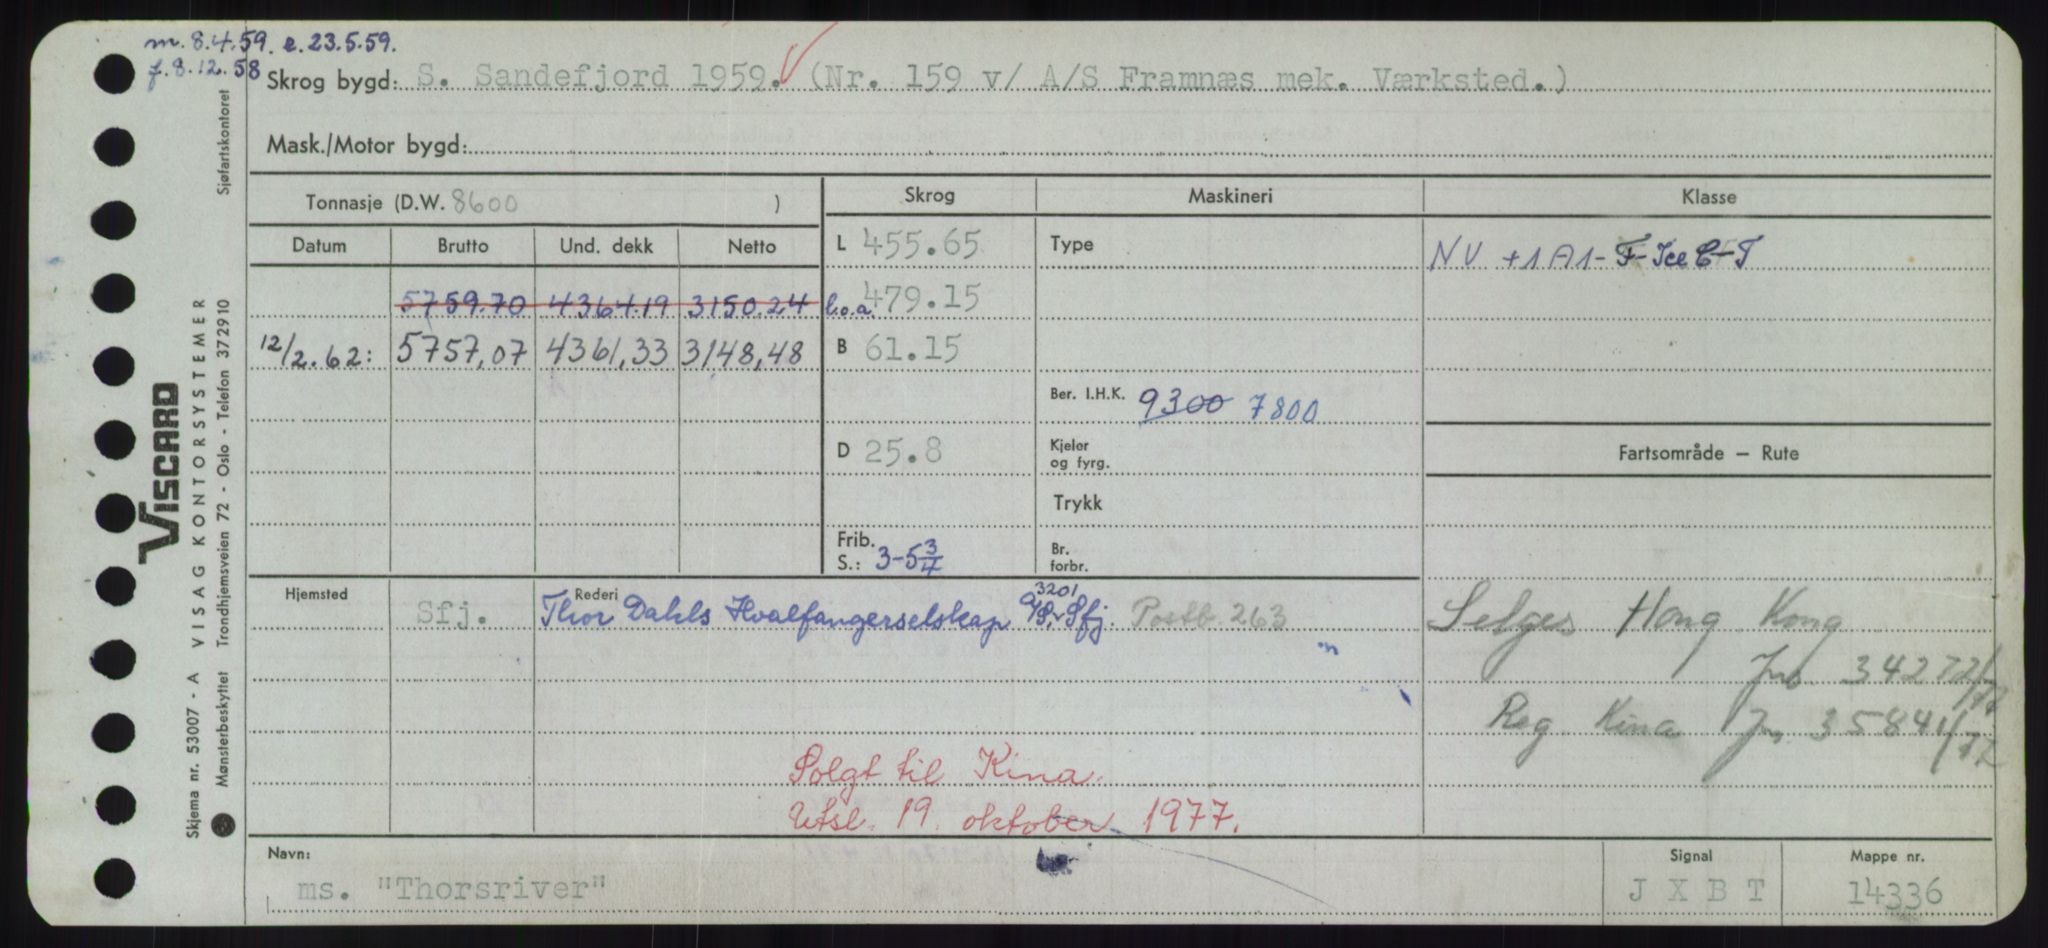 m. 8.4.59. e. 23.5.59.
f. 8.12.58
Skrog bygd: S. Sandefjord 1959. (Nr. 159 v/ A/S Framnæs mek. Værksted.)
Mask./Motor bygd:
Tonnasje (D.W. 8600 )
Skrog
Maskineri
Klasse
Datum Brutto Und. dekk Netto
L 455.65
Type
NV +1A1-F-Ice C-T
5759.70 4364.19 3150.24
l.o.a. 479.15
12/2.62: 5757,07 4361,33 3148,48
B 61.15
Ber. I.H.K. 9300 7800
D 25.8
Kjeler
og fyrg.
Fartsområde — Rute
Trykk
Frib.
S.: 3-5 3/4
Br.
forbr.
Hjemsted
Rederi
3201
Sfj. Thor Dahls Hvalfangerselskap A/S, Sfj. Postb. 263
Selges Hong Kong
Jnr 34272/77
Reg Kina Jnr 35841/77
Solgt til Kina.
Utsl. 19. oktober 1977.
Navn:
ms. "Thorsriver"
Signal
J X B T
Mappe nr.
14336
Sjøfartskontoret
VISCARD
VISAG KONTORSYSTEMER
Trondhjemsveien 72 - Oslo - Telefon 372910
Skjema nr. 53007 - A
Mønsterbeskyttet